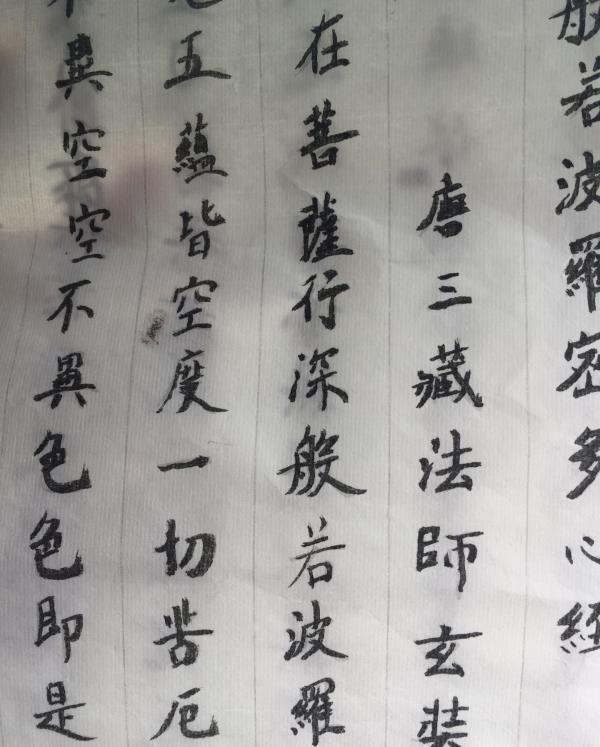 般若波羅密多心經
唐三藏法師玄奘
在菩薩行深般若波羅
五蘊皆空度一切苦厄
異空空不異色色即是